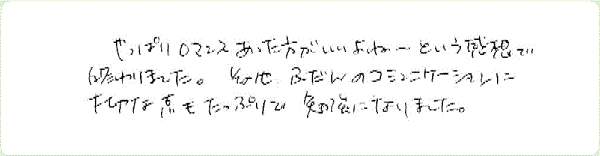 やっぱりロマンスあった方がいいよねーという感想で
終わりました。その他、ふだんのコミュニケーションに
大切な点もたっぷりで勉強になりました。